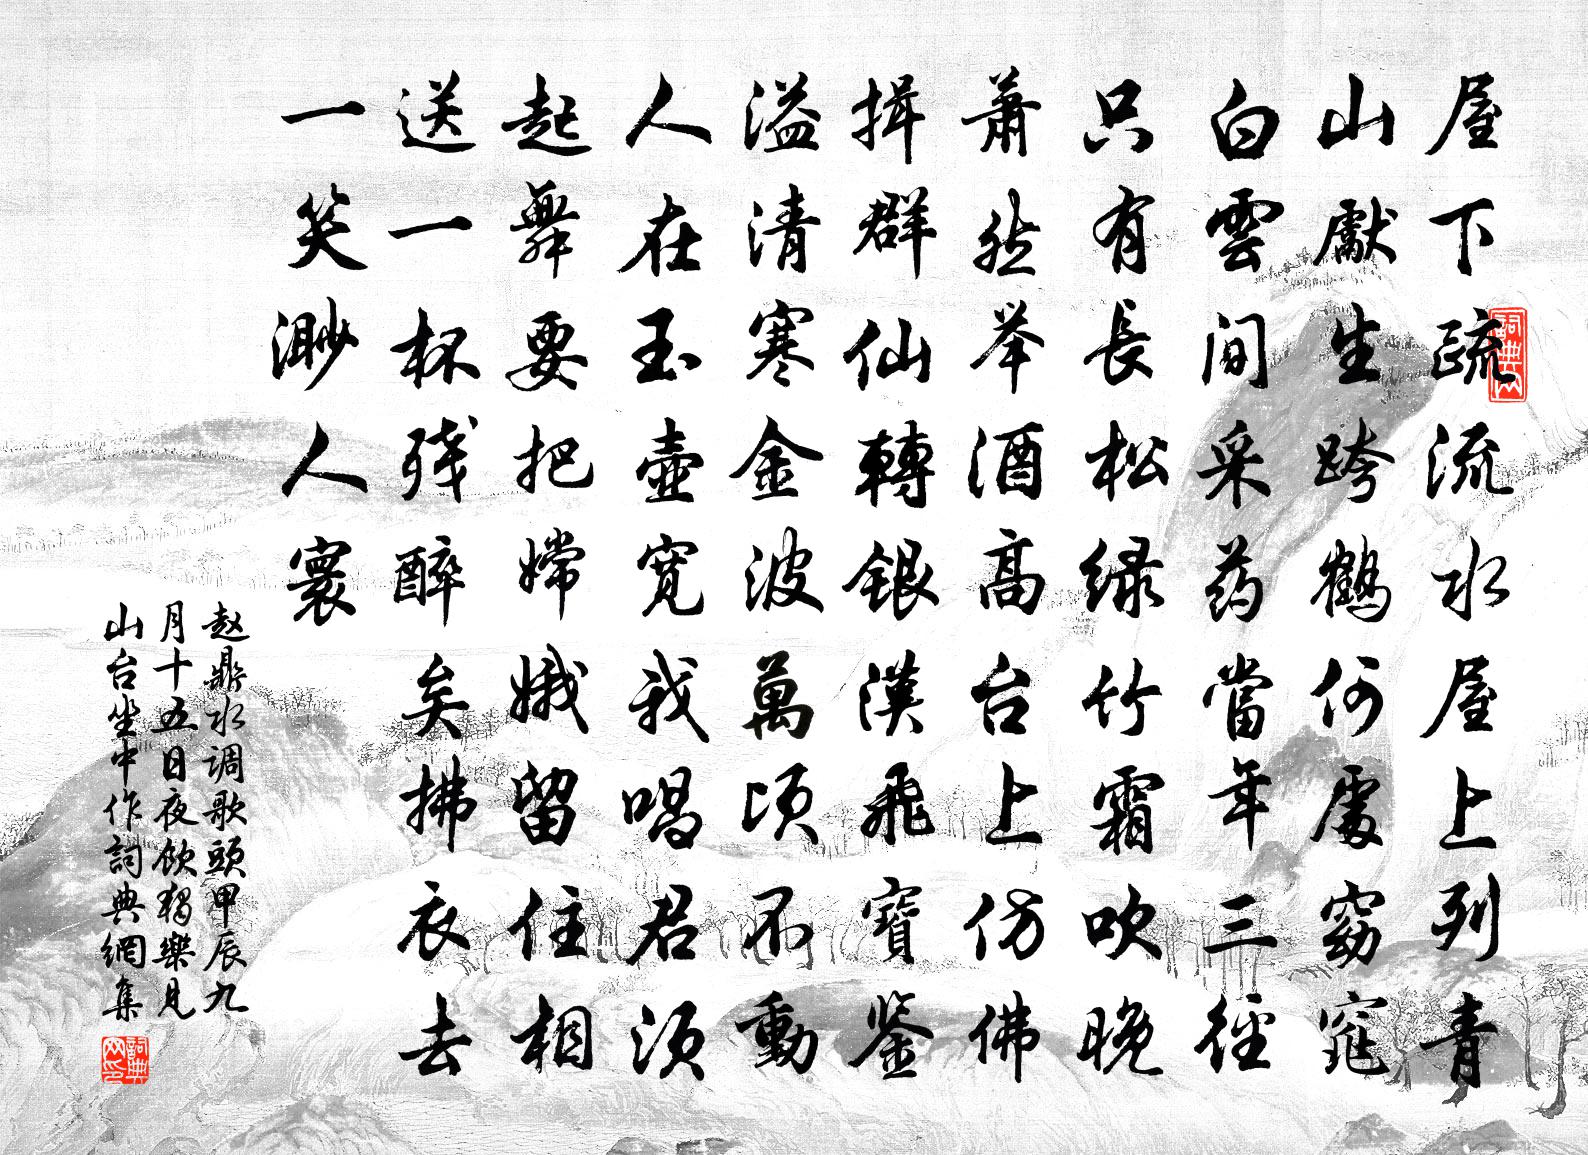 屋下疏流水屋上列青
山獻生跨鶴何處窈窕
白雲間采药當年三徑
只有長松绿竹霜吹晚
萧然举酒高台上仿佛
揖群仙轉銀漢飛寶鉴
溢清寒金波萬顷不動
人在玉壺寬我唱君须
起舞要把嫦娥留住相
送一杯残醉矣拂衣去
一笑渺人寰
赵鼎水调歌頭甲辰九
月十五日夜飲獨樂見
山台坐中作詞典網集
詞典网
詞典网印